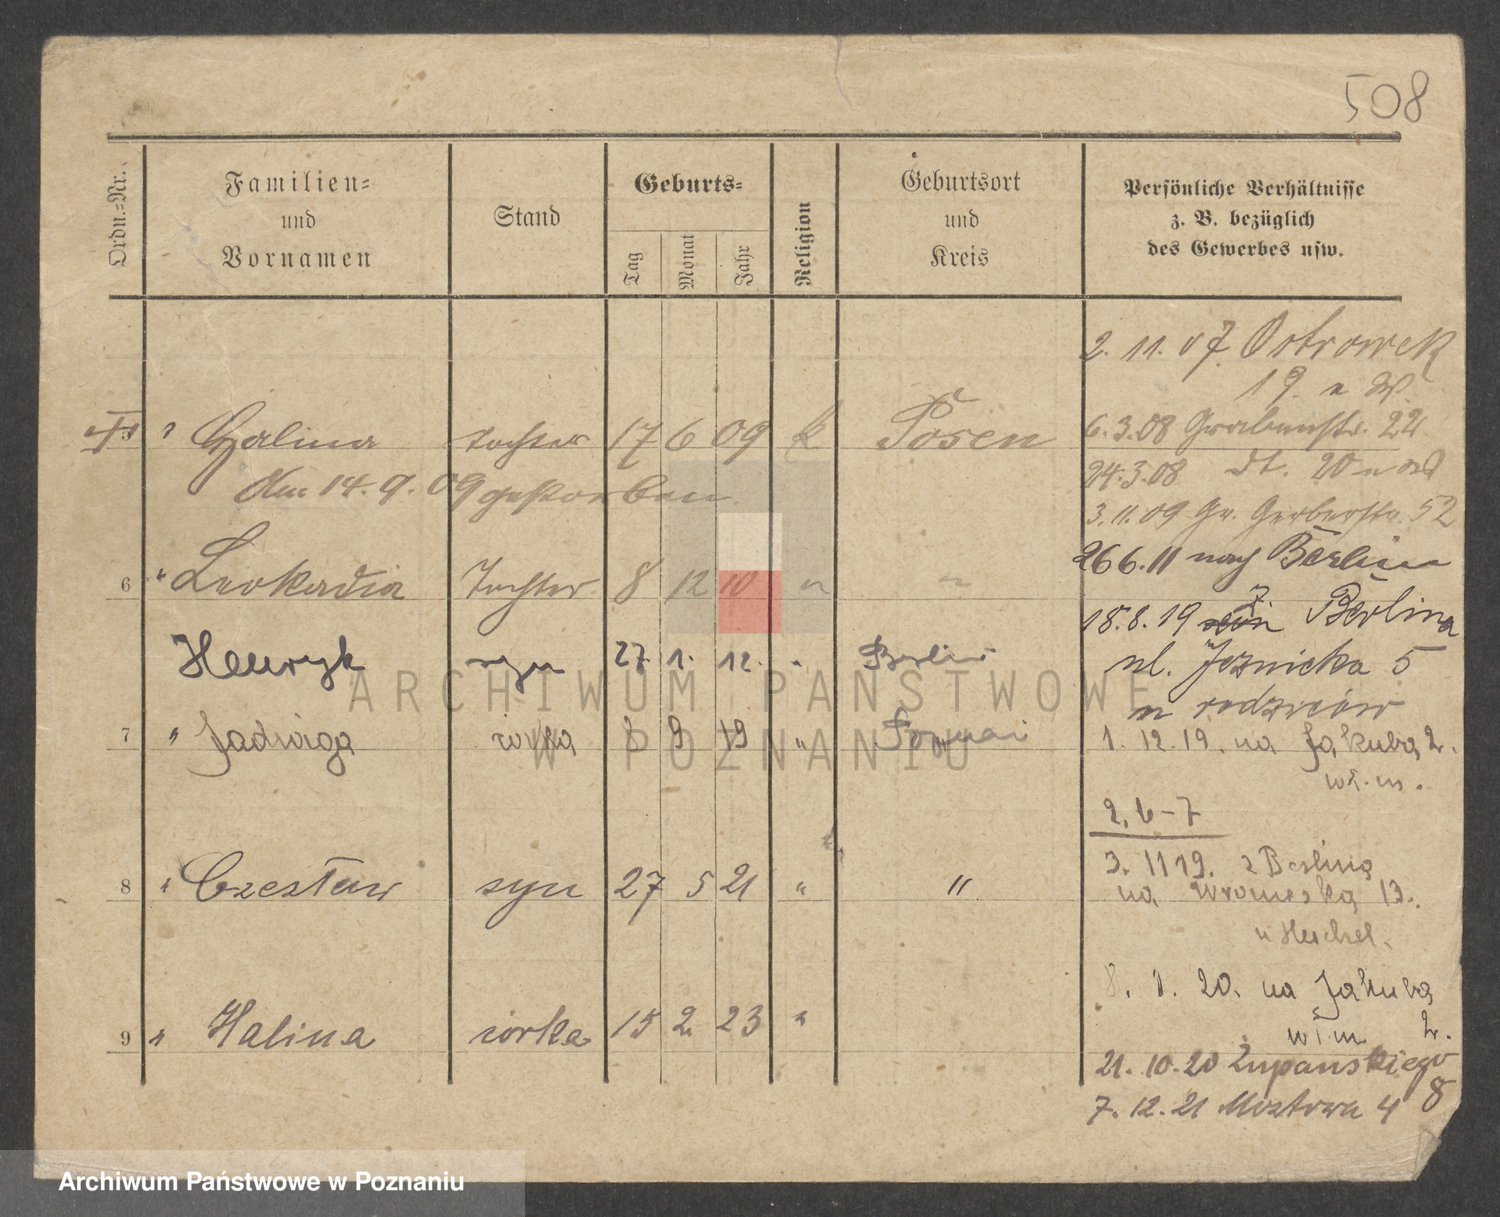 508
Ordn.-Nr.
Familien-
und
Vornamen
Stand
Geburts-
Tag
Monat
Jahr
Religion
Geburtsort
und
Kreis
Persönliche Verhältnisse
z. B. bezüglich
des Gewerbes usw.
2. 11. 07 Ostrowek
19.
5 " Halina Tochter 17 6 09 k Posen
Am 14. 9. 09 gestorben
6 " Leokadia Tochter 8 12 10 " "
Henryk syn 27. 1. 12. " Berlin
7 " Jadwiga córka 8 9 19 " Poznań
8 " Czesław syn 27 5 21 " "
9 " Halina córka 15 2 23 "
6.3.08 Grabenstr. 22
24.3.08 dt. 20
3.11.09 Gr. Gerberstr. 52
26 6.11 nach Berlin
18.8.19 z Berlina
ul. Języcka 5
u rodziców
1. 12. 19. na Jakuba 2.
wł. m.
2, 6-7
3. 11 19. z Berlina
na Wroniecką 13.
u Heichel.
8. 1. 20. na Jakuba
wł m 2.
21. 10. 20 Żupańskiego
8
7. 12. 21 Mostowa 4
ARCHIWUM PAŃSTWOWE
W POZNANIU
Archiwum Państwowe w Poznaniu